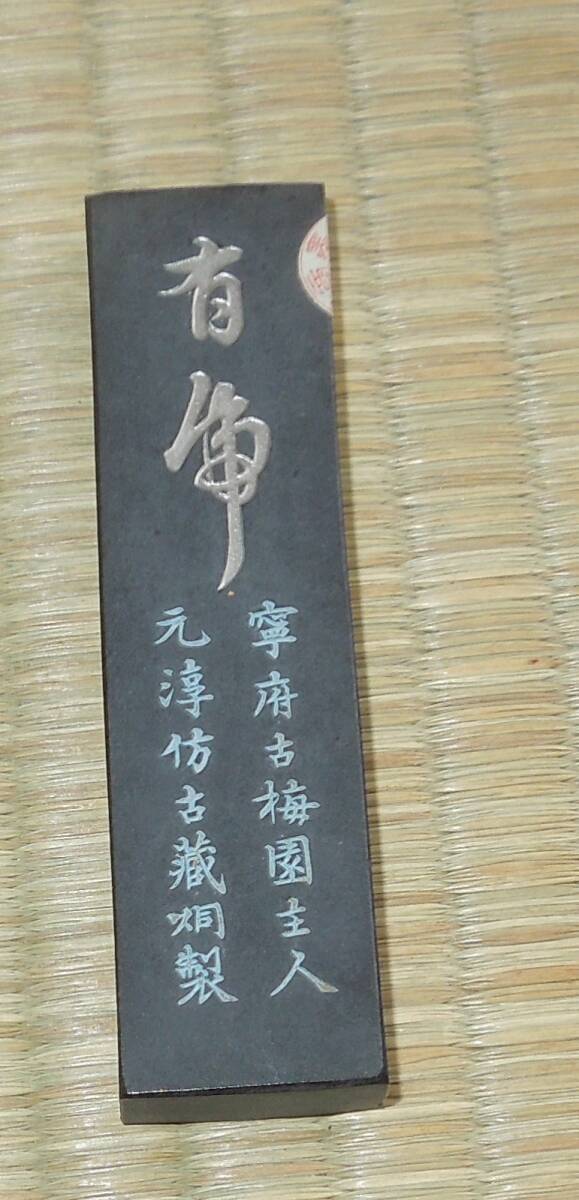 有
寧府古梅園主人
元淳仿古藏烟製